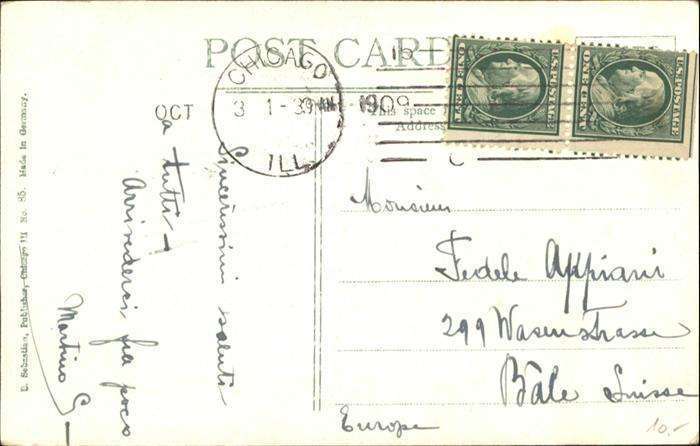 POST CARD
CHICAGO
OCT 3 1-30AM 1909
ILL.
This space
Address
U.S. POSTAGE
ONE CENT
U.S. POSTAGE
ONE CENT
Sincerissimi saluti
a tutti
Arrivederci fra poco
Martino G
Monsieur
Fedele Appiani
299 Wasenstrasse
Bâle Suisse
Europe
10.-
Publisher, Chicago Ill No. 85. Made in Germany.